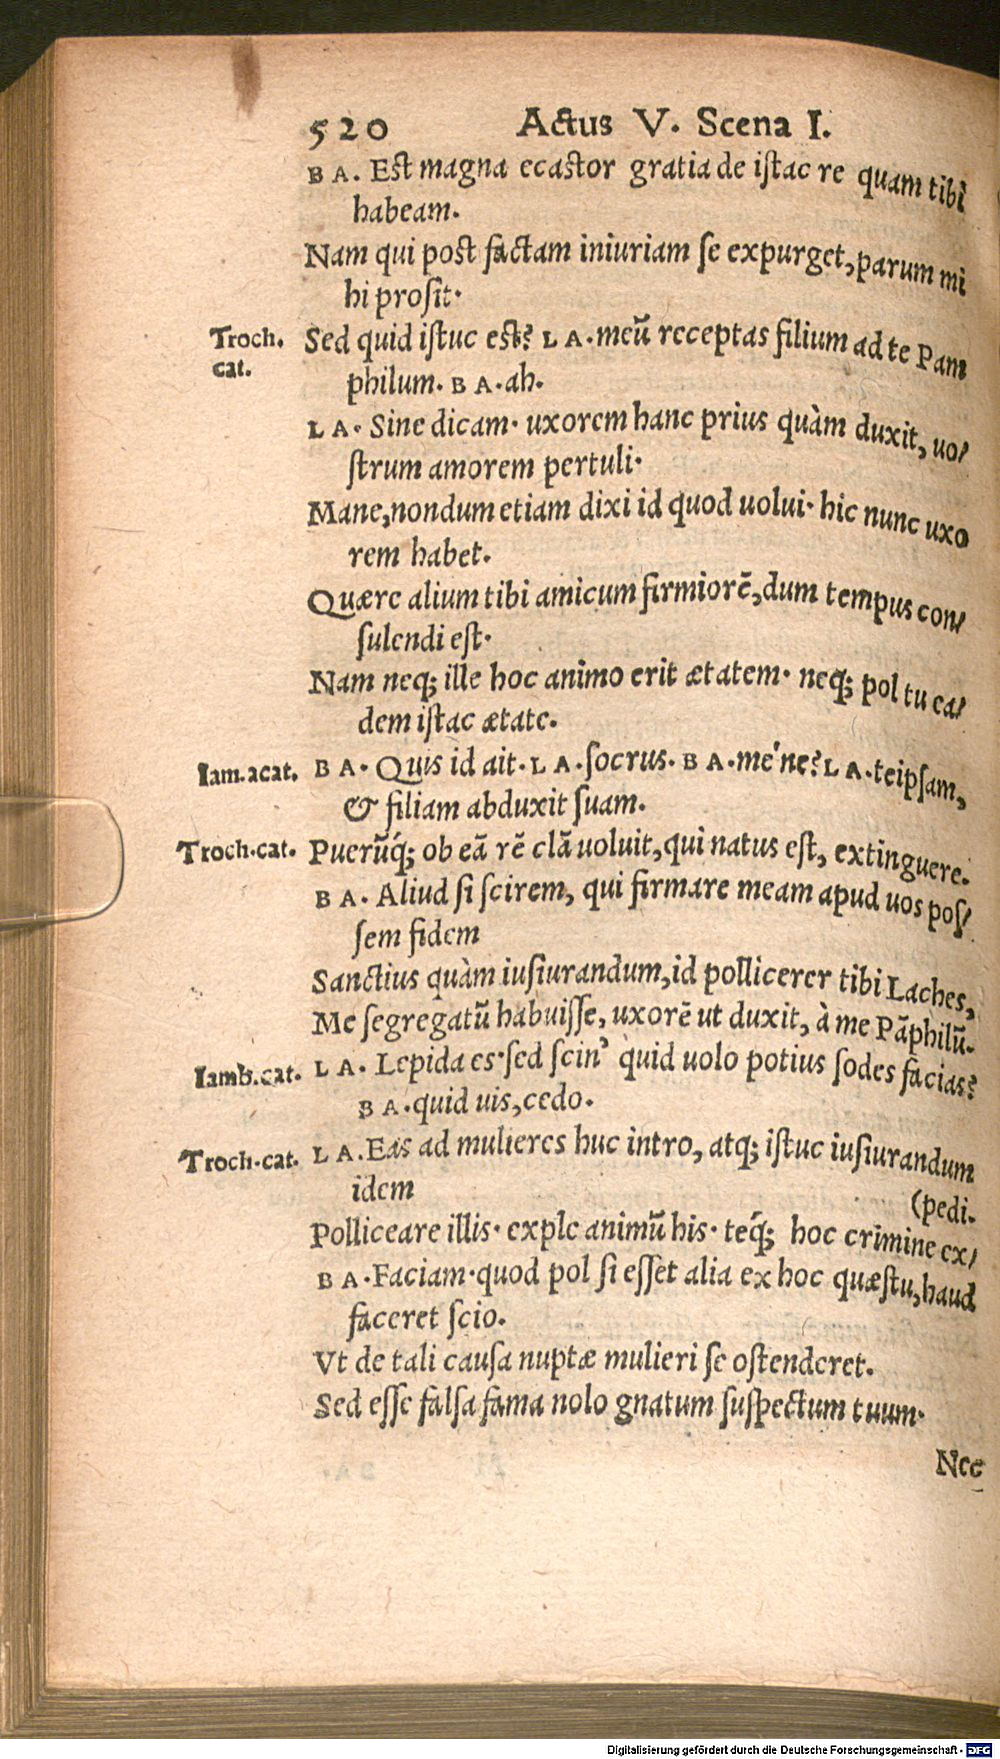 520 Actus V. Scena I.
BA. Est magna ecastor gratia de istac re quam tibi
habeam.
Nam qui post factam iniuriam se expurget, parum mi
hi prosit.
Troch. cat. Sed quid istuc est? LA. meũ receptas filium ad te Pam
philum. BA. ah.
LA. Sine dicam. uxorem hanc prius quàm duxit, uo/
strum amorem pertuli.
Mane, nondum etiam dixi id quod uolui. hic nunc uxo
rem habet.
Quære alium tibi amicum firmiorẽ, dum tempus con/
sulendi est.
Nam neq; ille hoc animo erit ætatem. neq; pol tu ea/
dem istac ætate.
Iam. acat. BA. Quis id ait. LA. socrus. BA. me'ne? LA. teipsam,
& filiam abduxit suam.
Troch. cat. Puerũq́; ob eã rẽ clã uoluit, qui natus est, extinguere.
BA. Aliud si scirem, qui firmare meam apud uos pos/
sem fidem
Sanctius quàm iusiurandum, id pollicerer tibi Laches,
Me segregatũ habuisse, uxorẽ ut duxit, à me Pãphilũ.
Iamb. cat. LA. Lepida es. sed scin' quid uolo potius sodes facias?
BA. quid uis, cedo.
Troch. cat. LA. Eas ad mulieres huc intro, atq; istuc iusiurandum
idem (pedi.
Polliceare illis. exple animũ his. teq́; hoc crimine ex/
BA. Faciam. quod pol si esset alia ex hoc quæstu, haud
faceret scio.
Vt de tali causa nuptæ mulieri se ostenderet.
Sed esse falsa fama nolo gnatum suspectum tuum.
Nec
Digitalisierung gefördert durch die Deutsche Forschungsgemeinschaft - DFG